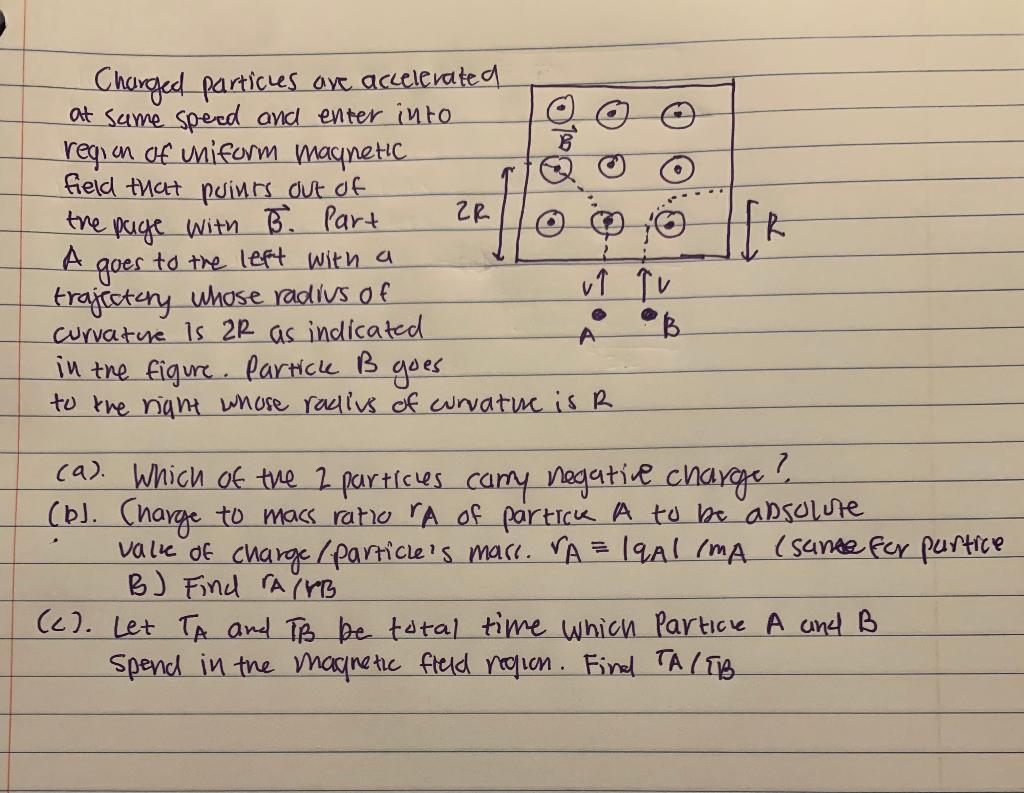 Charged particles are accelerated
at same speed and enter into
region of uniform magnetic
field that points out of
the page with B⃗. Part
A goes to the left with a
trajectory whose radius of
curvature is 2R as indicated
in the figure. Particle B goes
to the right whose radius of curvature is R
B⃗
2R
R
v
v
A
B
(a). Which of the 2 particles carry negative charge?
(b). Charge to mass ratio rA of particle A to be absolute
value of charge/particle's mass. rA ≡ |qA| /mA (same for partice
B) Find rA/rB
(c). Let TA and TB be total time which Particle A and B
spend in the magnetic field region. Find TA/TB